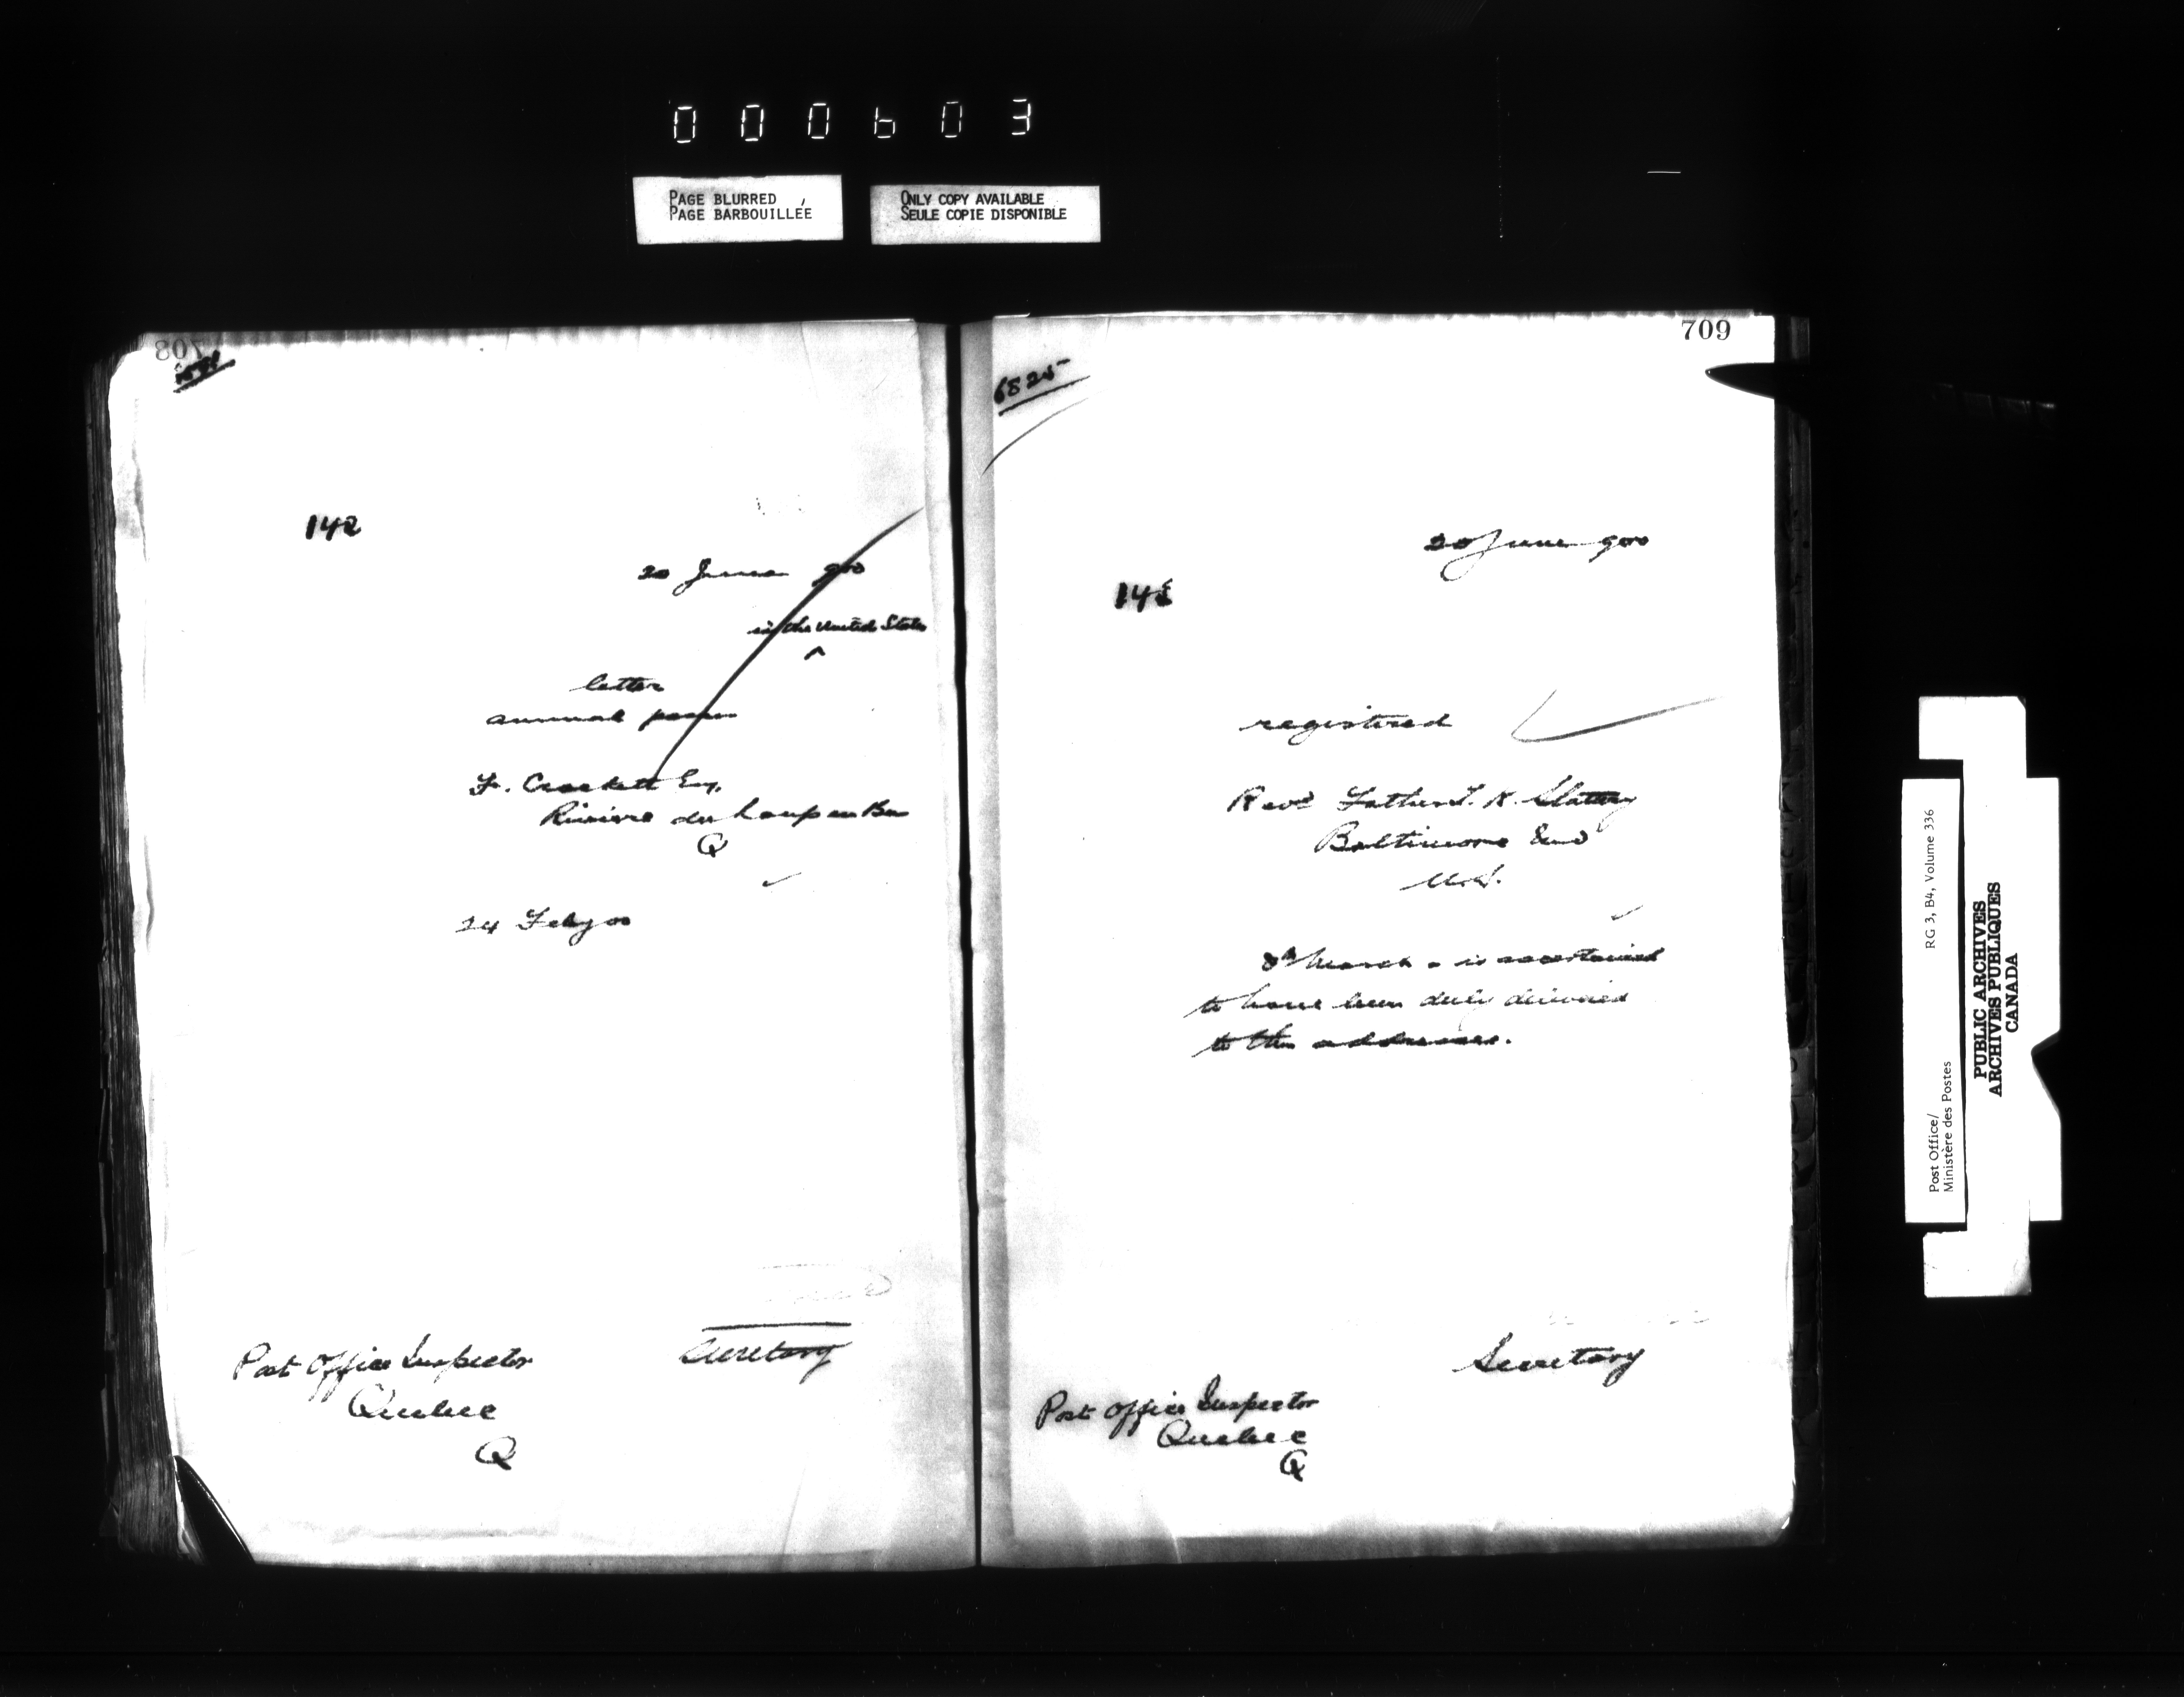 000603
PAGE BLURRED
PAGE BARBOUILLÉE
ONLY COPY AVAILABLE
SEULE COPIE DISPONIBLE
708
142
20 June 900
in the United States
^
letter
annual passes
F. Crockett Esq.
Rivière du Loup en Bas
Q
24 Feby 00
Secretary
Post Office Inspector
Quebec
Q
709
6825
20 June 900
registered
Revd Father J. R. Slattery
Baltimore
U.S.
8th March - is ascertained
to have been duly delivered
to the addressee.
Secretary
Post Office Inspector
Quebec
Q
Post Office/
Ministère des Postes
RG 3, B4, Volume 336
PUBLIC ARCHIVES
ARCHIVES PUBLIQUES
CANADA